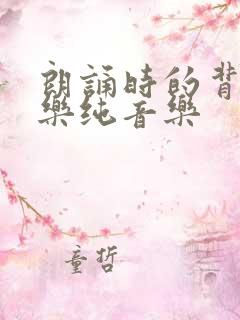 朗誦時的背
樂纯音樂
童哲